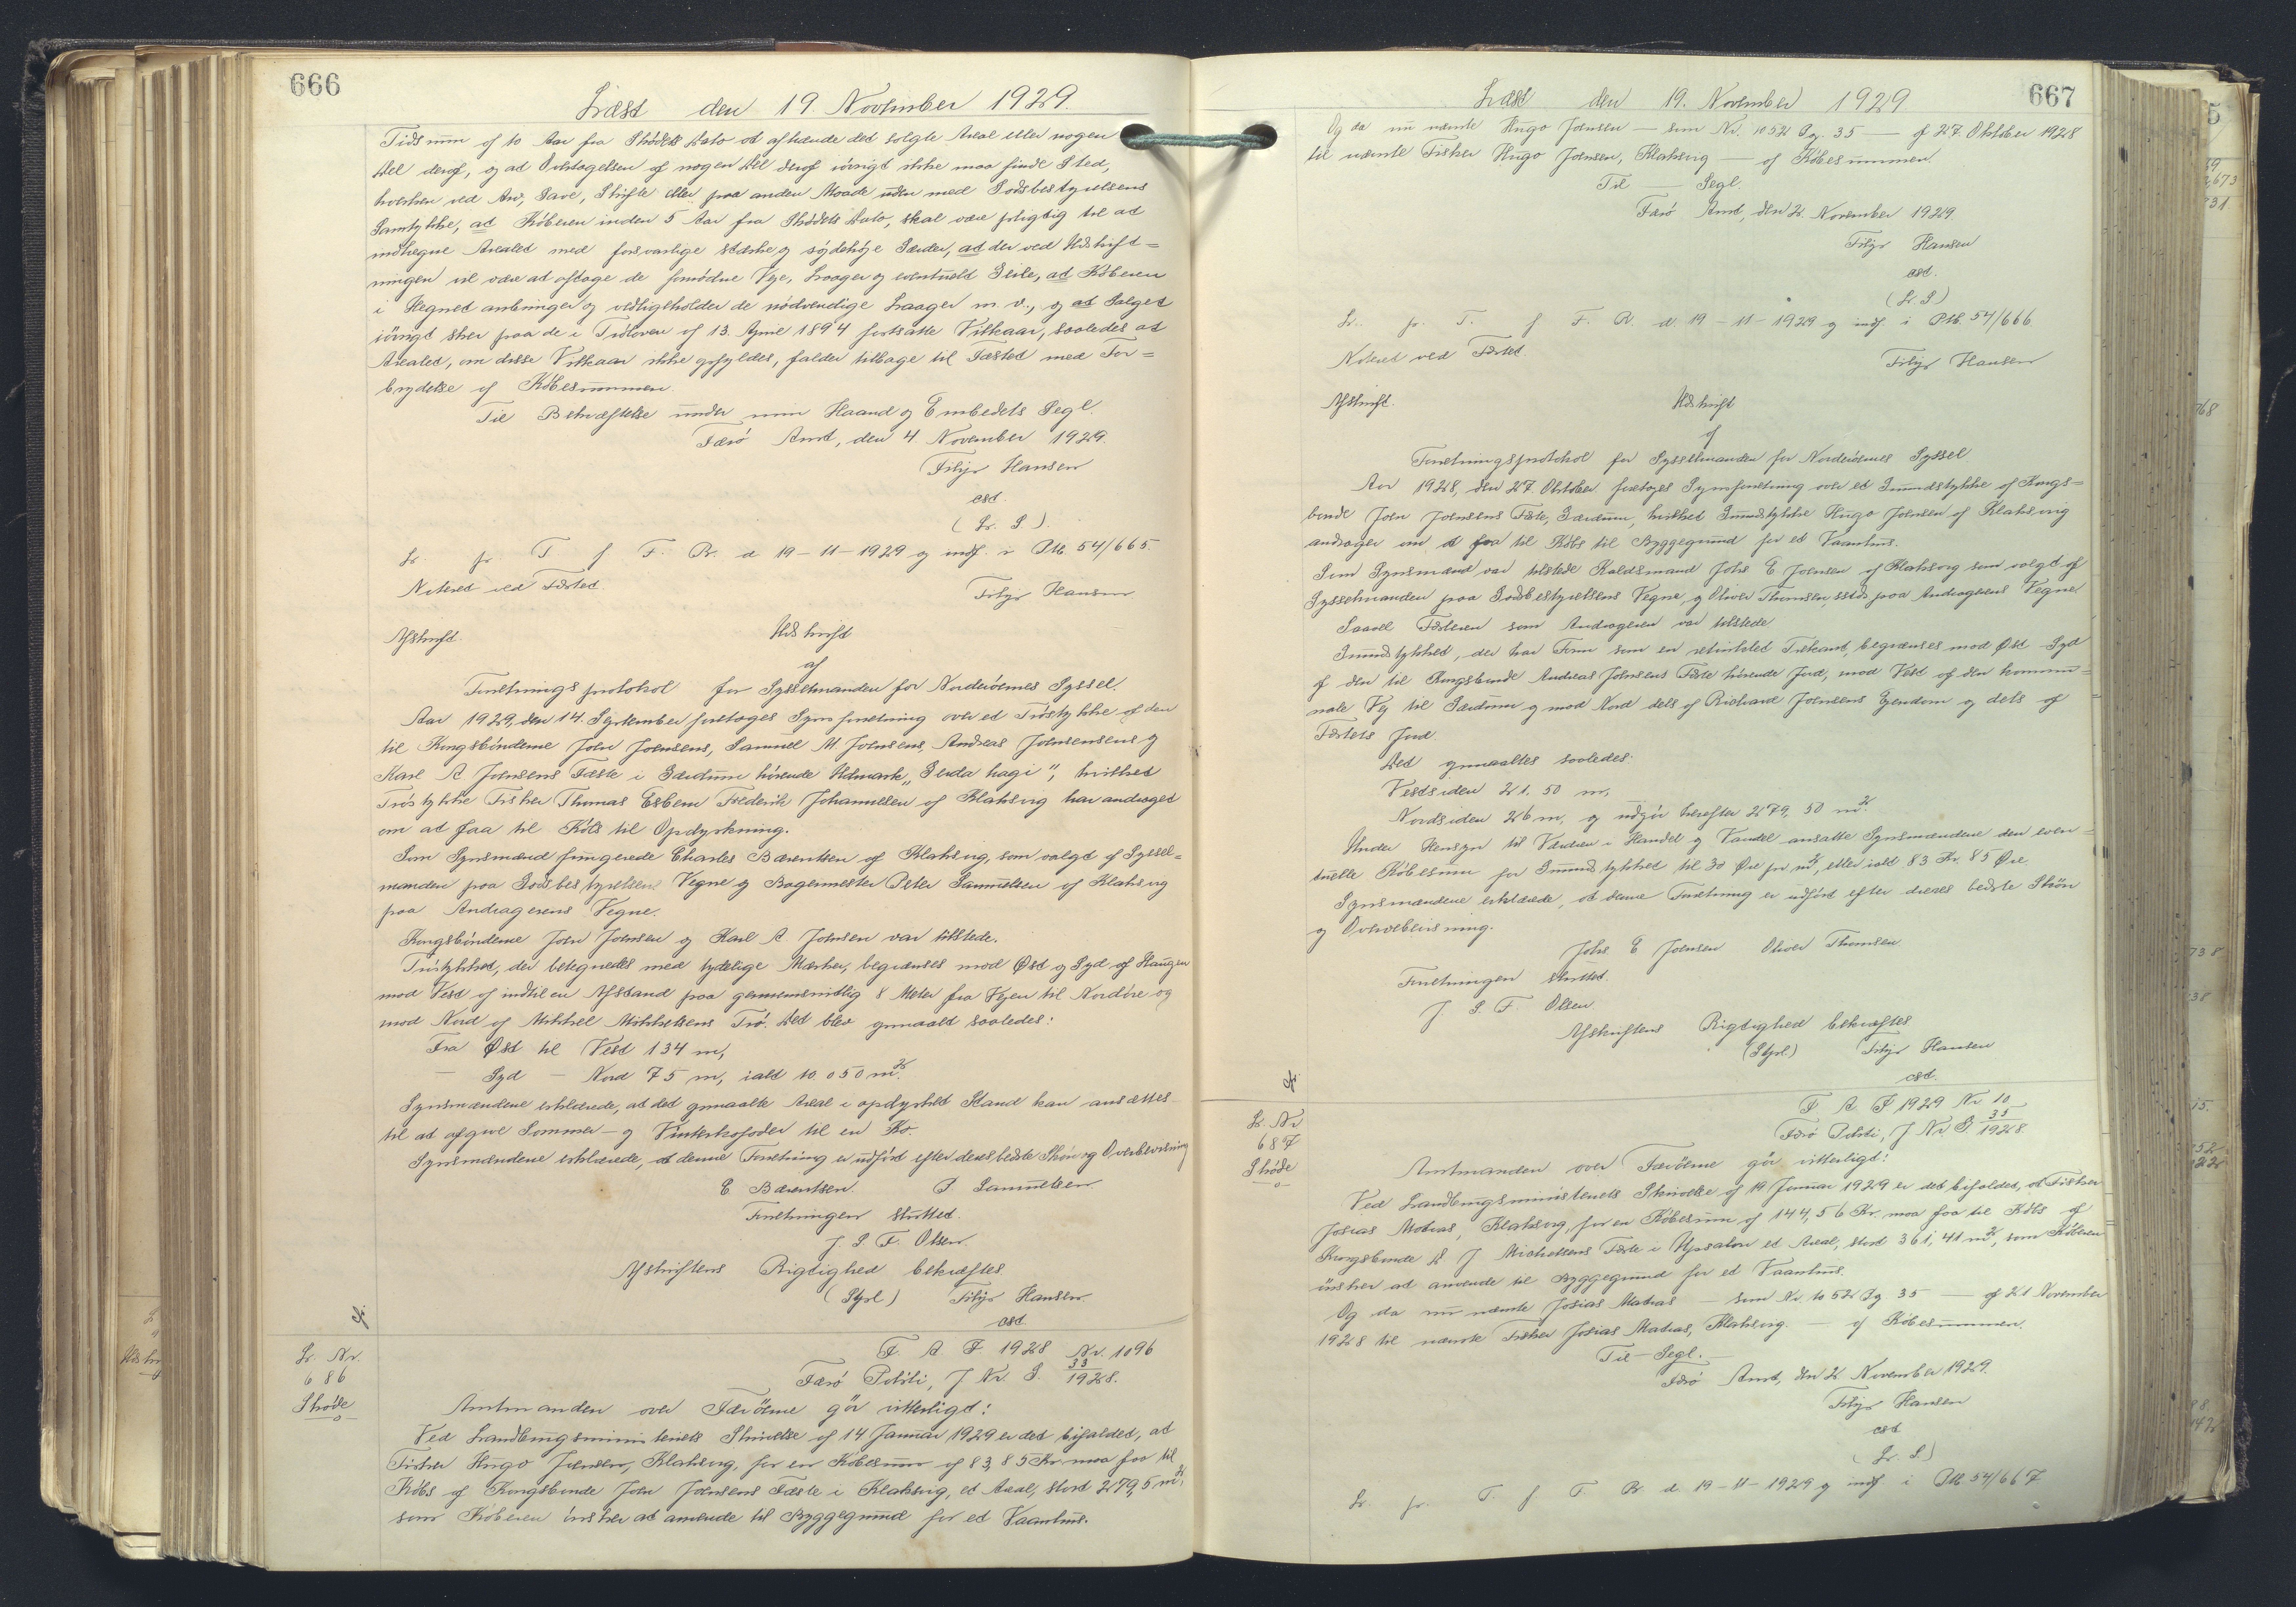 666
Læst den 19. November 1929.
Tidsrum af 10 Aar fra Skødets Dato at afhænde det solgte Areal eller nogen
Del deraf, og at Overtagelsen af nogen Del deraf iøvrigt ikke maa finde Sted,
hverken ved Arv, Gave, Skifte eller paa anden Maade uden med Jordbestyrelsens
Samtykke, at Køberen inden 5 Aar fra Skødets Dato, skal være pligtig til at
indhegne Arealet med forsvarlige stærke og sydehøje Gærder, at der ved Udskift=
ningen vil være at aftage de fornødne Veje, Laager og eventuelt Geile, at Køberen
i Hegnet anbringer og vedligeholder de nødvendige Laager m. v., og at Salget
iøvrigt sker paa de i Trøloven af 13. April 1894 fortsatte Vilkaar, saaledes at
Arealet, om disse Vilkaar ikke opfyldes, falder tilbage til Fæstet med For=
brydelse af Købesummen.
Til Bekræftelse under min Haand og Embedets Segl.
Færø Amt, den 4 November 1929.
Filip Hansen
cst.
(L. S.)
L. pr. T. f. F. R. d. 19-11-1929 og indf. i PM 54/665.
Noteret ved Fæstet
Filip Hansen
Afskrift. Udskrift
af
Forretningsprotokol for Sysselmanden for Norderøernes Syssel.
Aar 1929, den 14. September foretoges Synsforretning over et Trøstykke af den
til Kongsbønderne Joen Joensens, Samuel M. Joensens, Andreas Joensensens og
Karl A. Joensens Fæste i Gærdum hørende Udmark "Gerda hagi", hvilket
Trøstykke Fisker Thomas Esbern Frederik Johannesen af Klaksvig har andraget
om at faa til Købs til Opdyrkning.
Som Synsmænd fungerede Charles Bærentsen af Klaksvig, som valgt af Syssel=
manden paa Jordbestyrelsens Vegne og Bagermester Peter Samuelsen af Klaksvig
paa Andragerens Vegne.
Kongsbønderne Joen Joensen og Karl A. Joensen var tilstede.
Trøstykket, der betegnedes med tydelige Mærker, begrænses mod Øst og Syd af Haugen
mod Vest af indtil en Afstand paa gennemsnitlig 8 Meter fra Vejen til Nordøre og
mod Nord af Mikkel Mikkelsens Trø. Det blev opmaalt saaledes:
Fra Øst til Vest 134 m,
— Syd — Nord 75 m, ialt 10.050 m².
Synsmændene erklærede, at det opmaalte Areal i opdyrket Stand kan ansættes
til at afgive Sommer- og Vinterkofoder til en Ko.
Synsmændene erklærede, at denne Forretning er udført efter deres bedste Skøn og Overbevisning
C Bærentsen. P. Samuelsen
Forretningen sluttet.
J. S. F. Olsen.
Afskriftens Rigtighed bekræftes.
(Stpl.) Filip Hansen.
cst.
cf
L. Nr.
686
Skøde
F. A. J. 1928 Nr. 1096
Færø Politi, J. Nr. G. 33/1928.
Amtmanden over Færøerne gør vitterligt:
Ved Landbrugsministeriets Skrivelse af 14 Januar 1929 er det bifaldet, at
Fisker Hugo Joensen, Klaksvig, for en Købesum af 83,85 Kr. maa faa til
Købs af Kongsbonde Joen Joensens Fæste i Klaksvig, et Areal, stort 279,5 m²,
som Køberen ønsker at anvende til Byggegrund for et Vaanhus.
667
Læst den 19. November 1929
Og da nu nævnte Hugo Joensen — som Nr. 1052 Pg. 35 — af 27 Oktober 1928
til nævnte Fisker Hugo Joensen, Klaksvig — af Købesummen.
Til — Segl.
Færø Amt, den 2. November 1929
Filip Hansen
cst.
(L. S)
L. pr. T. f F. R. d. 19-11-1929 og indf. i PM. 54/666
Noteret ved Fæstet
Filip Hansen
Afskrift. Udskrift
af
Forretningsprotokol for Sysselmanden for Norderøernes Syssel
Aar 1928, den 27. Oktober foretoges Synsforretning over et Grundstykke af Kongs=
bonde Joen Joensens Fæste, Gærdum, hvilket Grundstykke Hugo Joensen af Klaksvig
andrager om at faa til Købs til Byggegrund for et Vaanhus.
Som Synsmænd var tilstede Raadsmand Johs E. Joensen af Klaksvig som valgt af
Sysselmanden paa Jordbestyrelsens Vegne, og Oliver Thomsen, sstds paa Andragerens Vegne.
Saavel Fæsteren som Andrageren var tilstede
Grundstykket, der har Form som en retvinklet Trekant, begrænses mod Øst Syd
af den til Kongsbonde Andreas Joensens Fæste hørende Jord, mod Vest af den kommu=
nale Vej til Gærdum og mod Nord dels af Richard Joensens Ejendom og dels af
Fæstets Jord.
Det opmaaltes saaledes:
Vestsiden 21.50 m,
Nordsiden 26 m, og udgør herefter 279,50 m².
Under Hensyn til Værdien i Handel og Vandel ansatte Synsmændene den even=
tuelle Købesum for Grundstykket til 30 Øre pr m², eller ialt 83 Kr. 85 Øre.
Synsmændene erklærede, at denne Forretning er udført efter deres bedste Skøn
og Overbevisning.
Johs E Joensen Oliver Thomsen
Forretningen sluttet.
J. S. F. Olsen
Afskriftens Rigtighed bekræftes
(Stpl.) Filip Hansen
cst.
cf.
L. Nr
687
Skøde
F. A. J 1929 Nr 10
Færø Politi, J Nr. G. 35/1928.
Amtmanden over Færøerne gør vitterligt:
Ved Landbrugsministeriets Skrivelse af 19 Januar 1929 er det bifaldet, at Fisker
Josias Matras, Klaksvig, for en Købesum af 144,56 Kr. maa faa til Købs af
Kongsbonde D. J. Michelsens Fæste i Uppsalon et Areal, stort 361,41 m², som Køberen
ønsker at anvende til Byggegrund for et Vaanhus.
Og da nu nævnte Josias Matras — som Nr. 1052 Pg 35 — af 21 November
1928 til nævnte Fisker Josias Matras, Klaksvig. — af Købesummen.
Til — Segl.
Færø Amt, den 2 November 1929.
Filip Hansen
cst
(L. S.)
L. pr. T. f F. R d. 19-11-1929 og indf. i PM 54/667